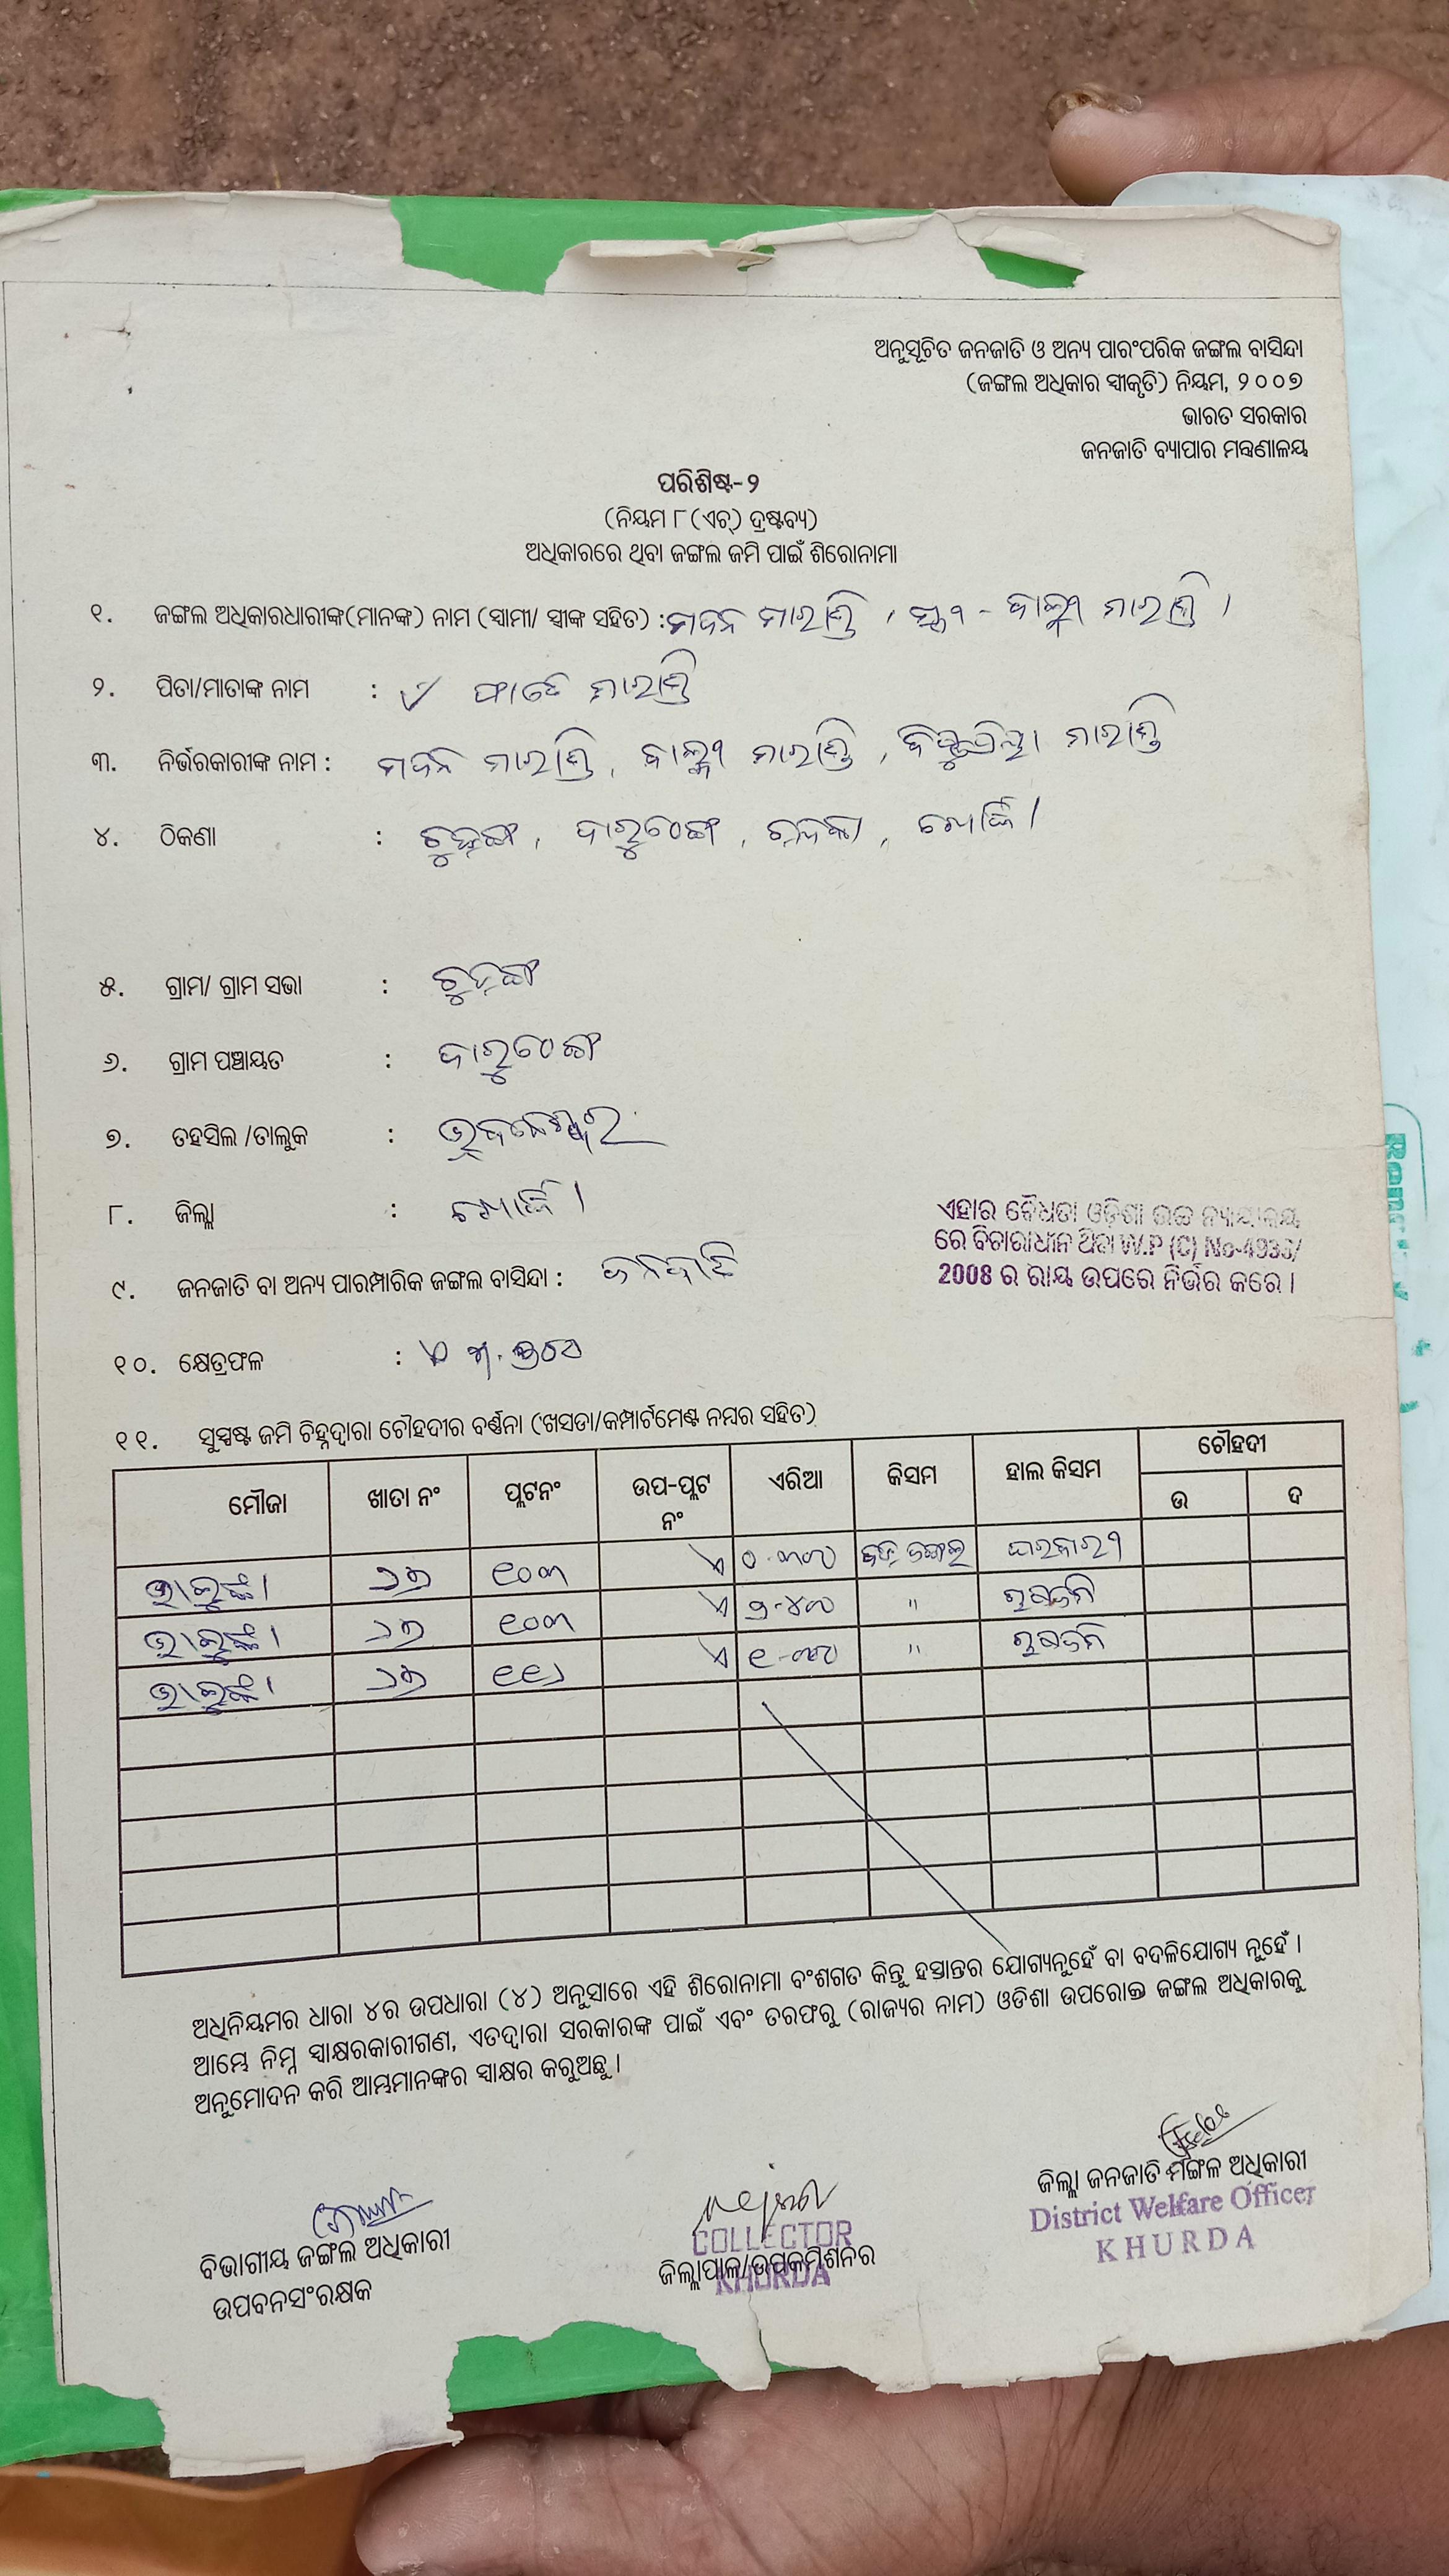 ଅନୁସୂଚିତ ଜନଜାତି ଓ ଅନ୍ୟ ପାରଂପରିକ ଜଙ୍ଗଲ ବାସିନ୍ଦା
(ଜଙ୍ଗଲ ଅଧିକାର ସ୍ୱୀକୃତି) ନିୟମ, ୨୦୦୭
ଭାରତ ସରକାର
ଜନଜାତି ବ୍ୟାପାର ମନ୍ତ୍ରଣାଳୟ
ପରିଶିଷ୍ଟ-୨
(ନିୟମ ୮(ଏଚ୍) ଦ୍ରଷ୍ଟବ୍ୟ)
ଅଧିକାରରେ ଥିବା ଜଙ୍ଗଲ ଜମି ପାଇଁ ଶିରୋନାମା
୧. ଜଙ୍ଗଲ ଅଧିକାରଧାରୀଙ୍କ(ମାନଙ୍କ) ନାମ (ସ୍ୱାମୀ/ ସ୍ତ୍ରୀଙ୍କ ସହିତ) : ମଦନ ମାରାଣ୍ଡି , ସ୍ତ୍ରୀ - ମାରାଣ୍ଡି ।
୨. ପିତା/ମାତାଙ୍କ ନାମ : ମାରାଣ୍ଡି
୩. ନିର୍ଭରକାରୀଙ୍କ ନାମ : ମଦନ ମାରାଣ୍ଡି, ମାରାଣ୍ଡି, ମାରାଣ୍ଡି
୪. ଠିକଣା : ଚୁଡ଼ଙ୍ଗ, ଦାରୁଠେଙ୍ଗ, ଚନ୍ଦକା, ଖୋର୍ଦ୍ଧା
୫. ଗ୍ରାମ/ ଗ୍ରାମ ସଭା : ଚୁଡ଼ଙ୍ଗ
୬. ଗ୍ରାମ ପଞ୍ଚାୟତ : ଦାରୁଠେଙ୍ଗ
୭. ତହସିଲ /ତାଲୁକ : ଭୁବନେଶ୍ୱର
୮. ଜିଲ୍ଲା : ଖୋର୍ଦ୍ଧା
ଏହାର ବୈଧତା ଓଡ଼ିଶା ଉଚ୍ଚ ନ୍ୟାୟାଳୟ
ରେ ବିଚାରାଧୀନ ଥିବା W.P (C) No-4933/
2008 ର ରାୟ ଉପରେ ନିର୍ଭର କରେ ।
୯. ଜନଜାତି ବା ଅନ୍ୟ ପାରମ୍ପାରିକ ଜଙ୍ଗଲ ବାସିନ୍ଦା : ଜନଜାତି
୧୦. କ୍ଷେତ୍ରଫଳ :
୧୧. ସୁସ୍ପଷ୍ଟ ଜମି ଚିହ୍ନଦ୍ୱାରା ଚୌହଦୀର ବର୍ଣ୍ଣନା (ଖସଡା/କମ୍ପାର୍ଟମେଣ୍ଟ ନମ୍ବର ସହିତ)
ମୌଜା ଖାତା ନଂ ପ୍ଲଟନଂ ଉପ-ପ୍ଲଟ ନଂ ଏରିଆ କିସମ ହାଲ କିସମ ଚୌହଦୀ
ଉ ଦ
୯୦୩ ଘରବାରୀ
୯୦୩ " ଚାଷଜମି
" ଚାଷଜମି
ଅଧିନିୟମର ଧାରା ୪ର ଉପଧାରା (୪) ଅନୁସାରେ ଏହି ଶିରୋନାମା ବଂଶଗତ କିନ୍ତୁ ହସ୍ତାନ୍ତର ଯୋଗ୍ୟନୁହେଁ ବା ବଦଳିଯୋଗ୍ୟ ନୁହେଁ ।
ଆମ୍ଭେ ନିମ୍ନ ସ୍ୱାକ୍ଷରକାରୀଗଣ, ଏତଦ୍ୱାରା ସରକାରଙ୍କ ପାଇଁ ଏବଂ ତରଫରୁ (ରାଜ୍ୟର ନାମ) ଓଡିଶା ଉପରୋକ୍ତ ଜଙ୍ଗଲ ଅଧିକାରକୁ
ଅନୁମୋଦନ କରି ଆମ୍ଭମାନଙ୍କର ସ୍ୱାକ୍ଷର କରୁଅଛୁ ।
ବିଭାଗୀୟ ଜଙ୍ଗଲ ଅଧିକାରୀ
ଉପବନସଂରକ୍ଷକ
COLLECTOR
ଜିଲ୍ଲାପାଳ/ଉପକମିଶନର
KHURDA
ଜିଲ୍ଲା ଜନଜାତି ମଙ୍ଗଳ ଅଧିକାରୀ
District Welfare Officer
KHURDA